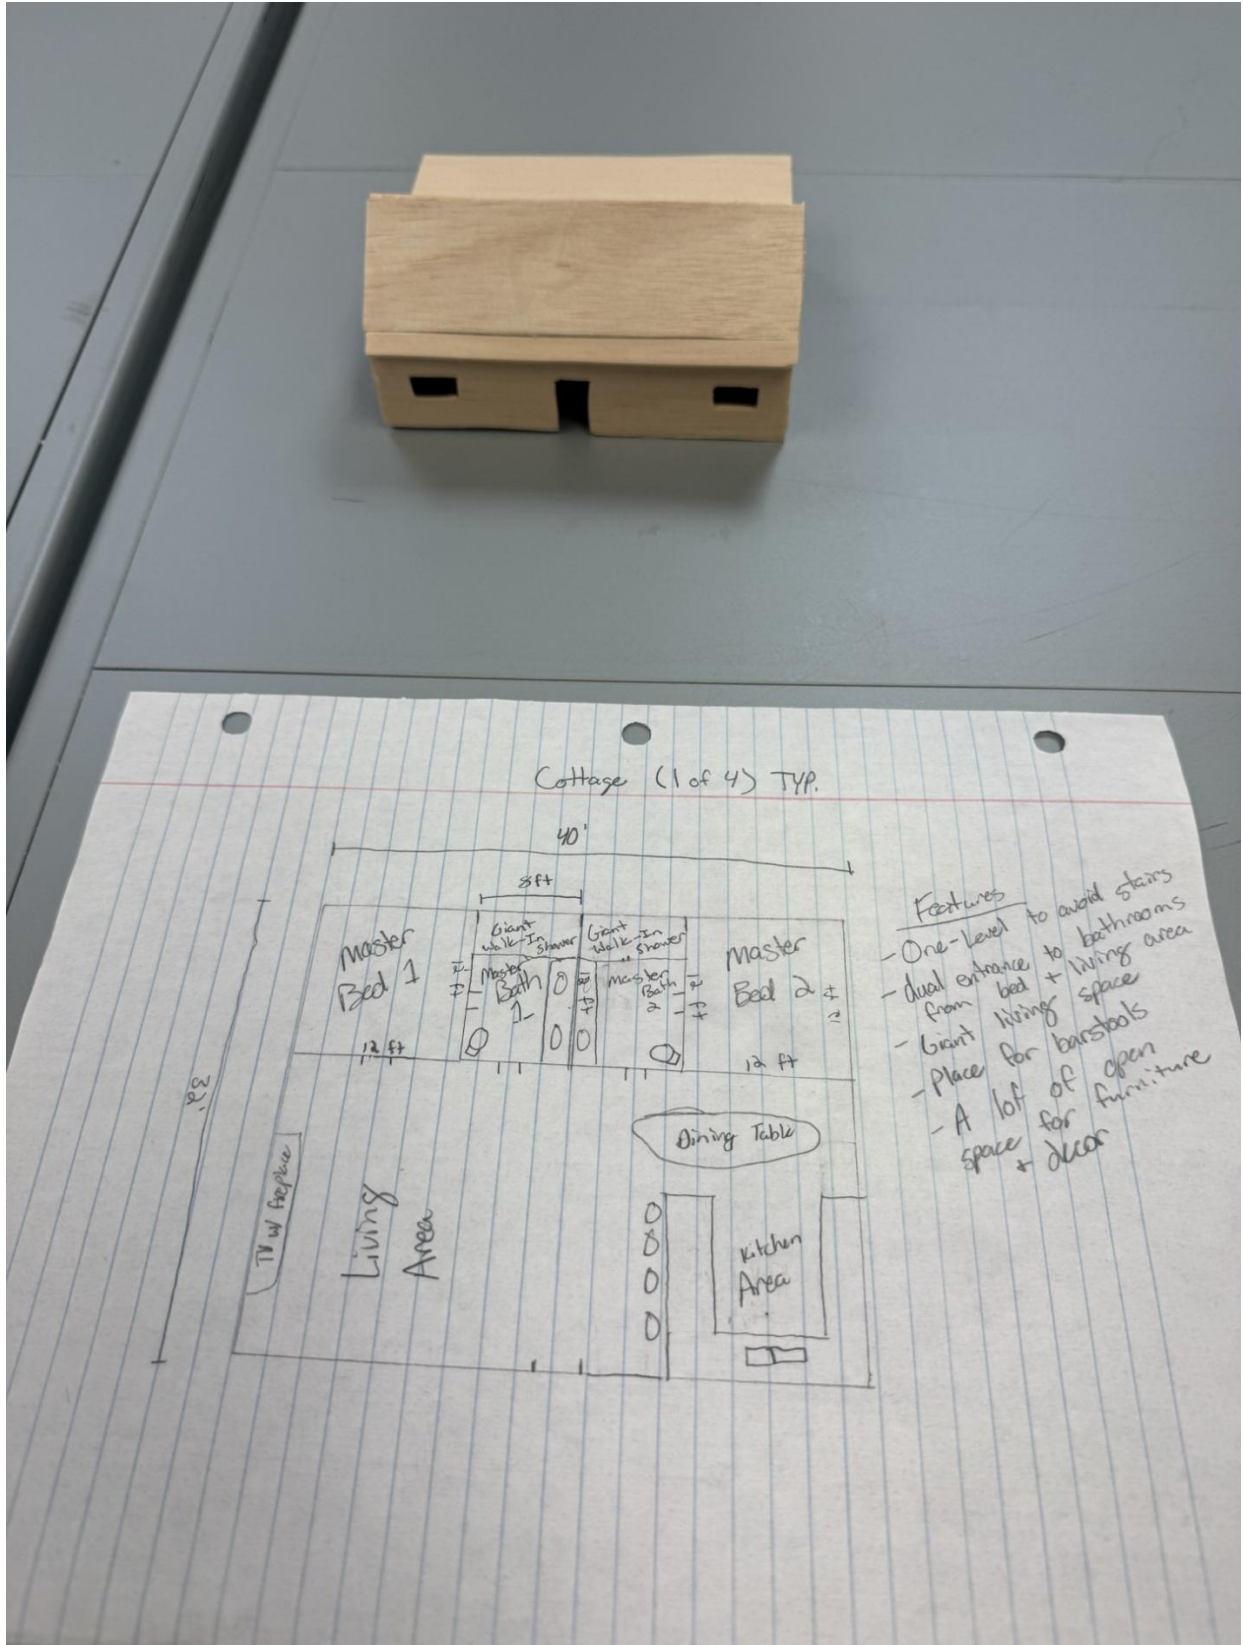 Cottage (1 of 4) TYP.
40'
8 ft
32'
Master
Bed 1
12 ft
Giant
Walk-In
Shower
Master
Bath
1
12 ft
Giant
Walk-In
Shower
Master
Bath
2
12 ft
Master
Bed 2
12 ft
12 ft
Dining Table
TV w/ fireplace
Living
Area
Kitchen
Area
Features
- One-Level to avoid stairs
- dual entrance to bathrooms
from bed + living area
- Giant living space
- Place for barstools
- A lot of open
space for furniture
+ decor